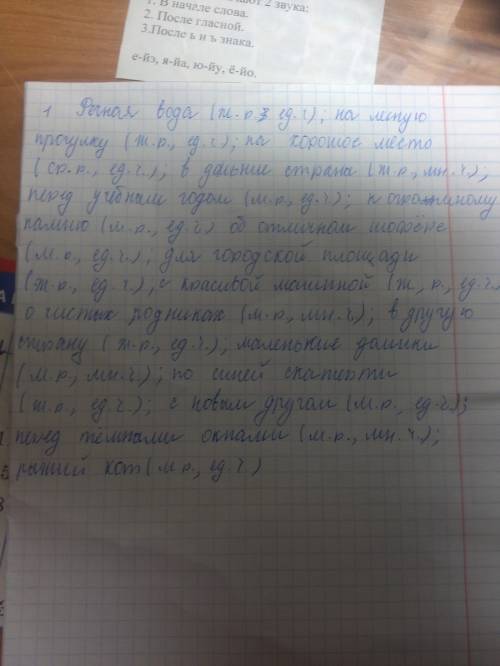 2 звука:
1. В начале слова.
2. После гласной.
3.После ь и ъ знака.
е-йэ, я-йа, ю-йу, ё-йо.
1 Речная вода (ж.р. ед.ч); на
прогулку (ж.р., ед.ч.); на хорошое место
(ср.р., ед.ч.); в дальние страна (ж.р., мн.ч.);
перед учебным годом (м.р., ед.ч.); к
(м.р., ед.ч) об отличном шофёре
(м.р., ед.ч.); для городской площади
(ж.р., ед.ч.), с красивой машинной (ж,р., ед.ч.
о чистых родниках (м.р., мн.ч.); в другую
страну (ж.р., ед.ч.); маленькие домики
(м.р., мн.ч.); по синей скатерти
(ж.р., ед.ч.); с новым другом (м.р., ед.ч);
перед тёмнами окнами (м.р., мн.ч.);
рыжий кот (м.р., ед.ч.)